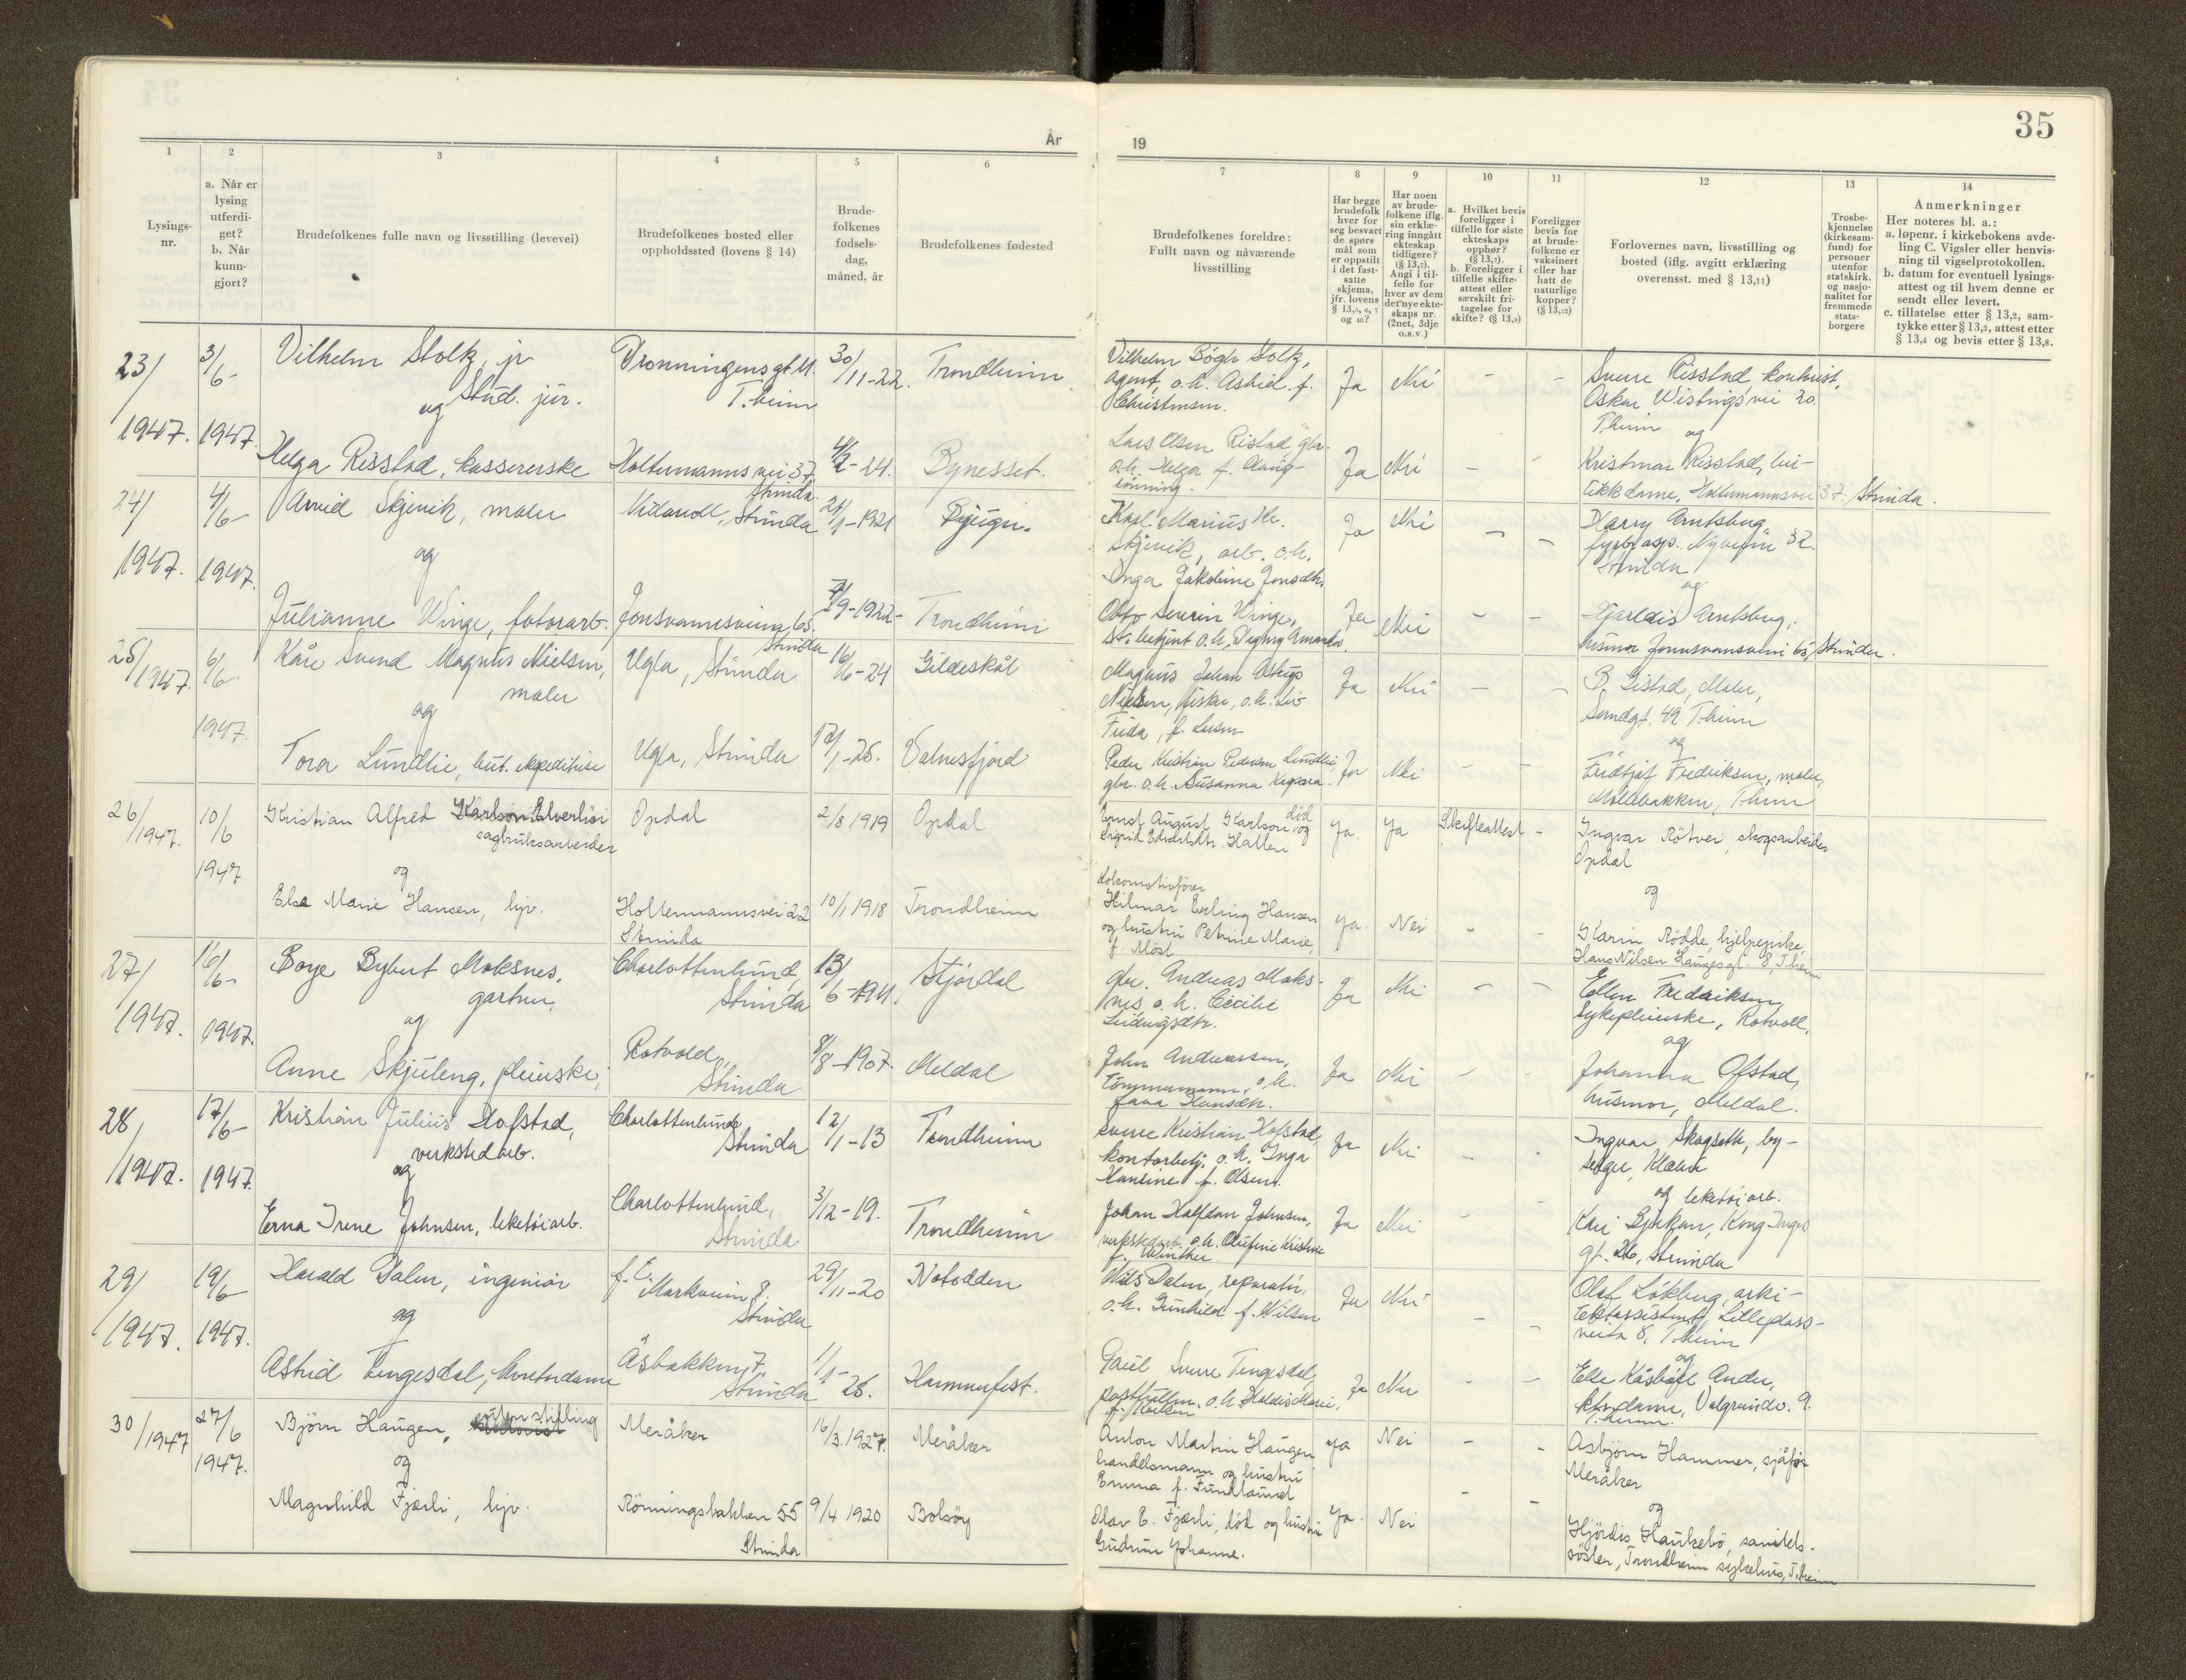 35
År
19
1
2
3
4
5
6
7
8
9
10
11
12
13
14
Lysings-
nr.
a. Når er
lysing
utferdi-
get?
b. Når
kunn-
gjort?
Brudefolkenes fulle navn og livsstilling (levevei)
Brudefolkenes bosted eller
oppholdssted (lovens § 14)
Brude-
folkenes
fødsels-
dag,
måned, år
Brudefolkenes fødested
Brudefolkenes foreldre:
Fullt navn og nåværende
livsstilling
Har begge
brudefolk
hver for
seg besvart
de spørs
mål som
er oppstilt
i det fast-
satte
skjema,
jfr. lovens
§ 13,5, 6, 7
og 10?
Har noen
av brude-
folkene iflg.
sin erklæ-
ring inngått
ekteskap
tidligere?
(§ 13,7).
Angi i til-
felle for
hver av dem
det nye ekte-
skaps nr.
(2net, 3dje
o.s.v.)
a. Hvilket bevis
foreligger i
tilfelle for siste
ekteskaps
opphør?
(§ 13,7).
b. Foreligger i
tilfelle skifte-
attest eller
særskilt fri-
tagelse for
skifte? (§ 13,9)
Foreligger
bevis for
at brude-
folkene er
vaksinert
eller har
hatt de
naturlige
kopper?
(§ 13,12)
Forlovernes navn, livsstilling og
bosted (iflg. avgitt erklæring
overensst. med § 13,11)
Trosbe-
kjennelse
(kirkesam-
fund) for
personer
utenfor
statskirk.
og nasjo-
nalitet for
fremmede
stats-
borgere
Anmerkninger
Her noteres bl. a.:
a. løpenr. i kirkebokens avde-
ling C. Vigsler eller henvis-
ning til vigselprotokollen.
b. datum for eventuell lysings-
attest og til hvem denne er
sendt eller levert.
c. tillatelse etter § 13,2, sam-
tykke etter § 13,3, attest etter
§ 13,4 og bevis etter § 13,8.
23/
1947.
3/6-
1947.
Vilhelm Stoltz, jr
Stud. jur.
og
Helga Risstad, kassererske
Dronningensgt. 11.
T.heim
Holtermanns vei 37
Strinda.
30/11-22.
4/2-24.
Trondheim
Bynesset.
Vilhelm Bøgh Stoltz,
agent, o.h. Astrid f.
Christensen.
Lars Olsen Ristad gbr.
o.h. Helga f.
Ja
Nei
-
-
Ja
Nei
-
-
Sverre Risstad, kontorist,
Oskar Wistings vei 20.
T.heim og
Kristman Risstad, bu-
tikkdame, Holtermannsvei 37, Strinda.
24/
1947.
4/6-
1947.
Arvid Skjevik, maler
og
Julianne Winge, fotoarb.
Strinda
Jonsvannsveien 65.
Strinda
/1-1921
7/9-1922-
Bjugn.
Trondheim
Karl Marius
Skjevik, arb. o.h.
Inga Jakobine Jonsdtr.
Otto Severin Winge,
st. betjent o.h. Dagny Amanda.
Ja
Nei
-
-
Ja
Nei
-
-
Harry Arntsberg,
Nyveien 32.
Strinda
og
Hjørdis Arntsberg,
husmor Jonsvannsveien 65, Strinda.
25/
1947.
6/6
1947.
Kåre Svend Magnus Nielsen,
maler
og
Tora Lundlie, but. ekspeditrise
Ugla, Strinda
Ugla, Strinda
16/6-24
12/1-26.
Gildeskål
Valnesfjord
Magnus Johan
Nielsen, fisker, o.h. Liv
Frida, f.
Peder Kristian Pedersen Lundlie,
gbr. o.h. Susanna
Ja
Nei
-
-
Ja
Nei
-
-
B. Gistad, Maler,
Sandgt. 49 T.heim
og
Fridtjof Fredriksen, maler,
Møllebakken, T.heim
26/
1947.
10/6
1947
Kristian Alfred Karlson Elverhöi
sagbruksarbeider
og
Else Marie Hansen, hjv.
Opdal
Holtermannsvei 22
Strinda
2/8 1919
10/1 1918
Opdal
Trondheim
Ernst August Karlson, død og
Sigrid Edvardsdtr. Hallen
Lokomotivfører
Hilmar Erling Hansen
og hustru Petrine Marie,
f. Möst
Ja.
Ja
Skifteattest
-
Ja.
Nei
-
-
Ingvar Rötvei, skogsarbeider
Opdal
og
Karin Rödde, hjelpepike,
Hans Nilsen Haugesgt. 8, T.heim
27/
1947.
16/6-
1947.
Boye Bybert Moksnes,
gartner,
og
Anne Skjuleng, pleierske,
Charlottenlund,
Strinda
Rotvold,
Strinda
13/6-1911.
8/8-1907.
Stjördal
Meldal
gbr. Andreas Moks-
nes o.h. Cecilie
Ludvigsdtr.
John Andreassen,
tømmermann, o.h.
Hansdtr.
Ja
Nei
-
-
Ja
Nei
-
-
Ellen Fredriksen,
Sykepleierske, Rotvoll,
og
Johanna Ofstad,
husmor, Meldal.
28/
1947.
17/6-
1947.
Kristian Julius Hofstad,
verkstedarb.
og
Erna Irene Johnsen, leketöiarb.
Charlottenlund,
Strinda
Charlottenlund,
Strinda
12/1-13
3/12-19.
Trondheim
Trondheim
Sverre Kristian Hofstad,
kontorbetj. o.h. Inga
Hansine f. Olsen.
Johan Halfdan Johnsen,
verkstedarb. o.h. Olufine Kristine
f. Winther.
Ja
Nei
-
-
Ja
Nei
-
-
Ingvar Skogseth, by-
selger, Klæbu
og leketöiarb.
Kari Bjerkan, Kong Inges
gt. 26, Strinda
29/
1947.
19/6
1947.
Harald Dalen, ingeniør
og
Astrid Tengesdal, kontordame
Markveien 8.
Strinda
Åsbakken 7,
Strinda
29/11-20
1/1-26.
Notodden
Hammerfest.
Nils Dalen, reparatør,
o.h. Gunhild f. Nilsen
Sverre Tengesdal,
o.h. Haldis Marie,
Ja
Nei
-
-
Ja
Nei
-
-
Olaf Lökberg, arki-
tektassistent, Lilleplass-
veita 8, T.heim
og
Else Kåsbøll Ander,
ktr.dame, Valgrindv. 9.
T.heim.
30/
1947
27/6
1947.
Björn Haugen, uten stilling
og
Magnhild Fjærli, hjv.
Meråker
Rönningsbakken 55
Strinda
16/3.1927.
9/4 1920
Meråker
Bolsöy
Anton Martin Haugen
handelsmann og hustru
Emma f. Fundlaunet
Olav E. Fjærli, död og hustru
Gudrun Johanne.
Ja
Nei
-
-
Ja.
Nei
-
-
Asbjörn Hammer, sjåför
Meråker
og
Hjördis Haukebö, sanitets-
söster, Trondheim sykehus, T.heim